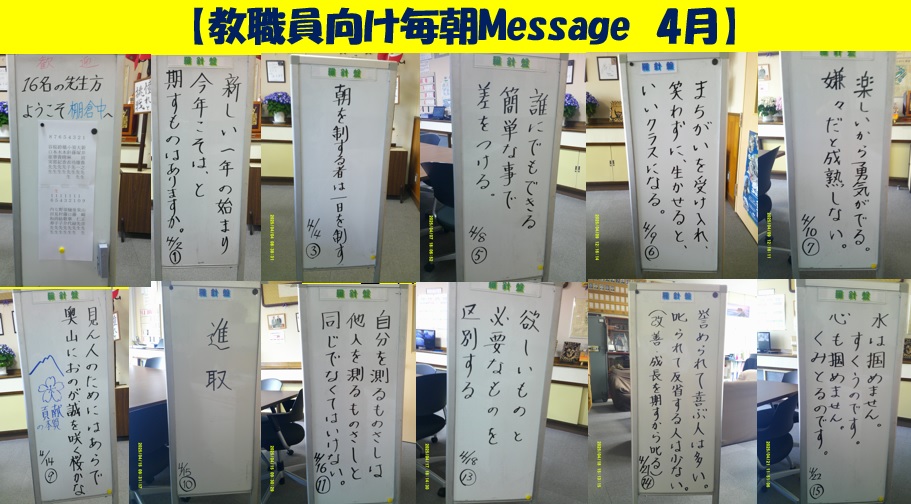 【教職員向け毎朝Message 4月】
歓迎
16名の先生方
ようこそ棚倉中へ
羅針盤
新しい一年の始まり
今年こそは、と
期すものはありますか。
4/2①
羅針盤
朝を制する者は一日を制す
4/4
③
羅針盤
誰にでもできる
簡単な事で
差をつける。
4/8
⑤
羅針盤
まちがいを受け入れ、
笑わずに、生かせると、
いいクラスになる。
4/9
⑥
羅針盤
楽しいから勇気がでる。
嫌々だと成熟しない。
4/10
⑦
羅針盤
見ん人のためにはあらで
奥山におのが誠を咲く桜かな
4/14
⑨
羅針盤
進取
4/15
⑩
羅針盤
自分を測るものさしは
他人を測るものさしと
同じでなくてはいけない。
4/16
⑪
羅針盤
欲しいものと
必要なものを
区別する
4/18
⑬
羅針盤
誉められて喜ぶ人は多い。
叱られて反省する人は少ない。
(改善・成長を期すから叱る)
4/21
⑭
羅針盤
水は掴めません。
すくうのです
心も掴めません
くみとるのです。
4/22
⑮